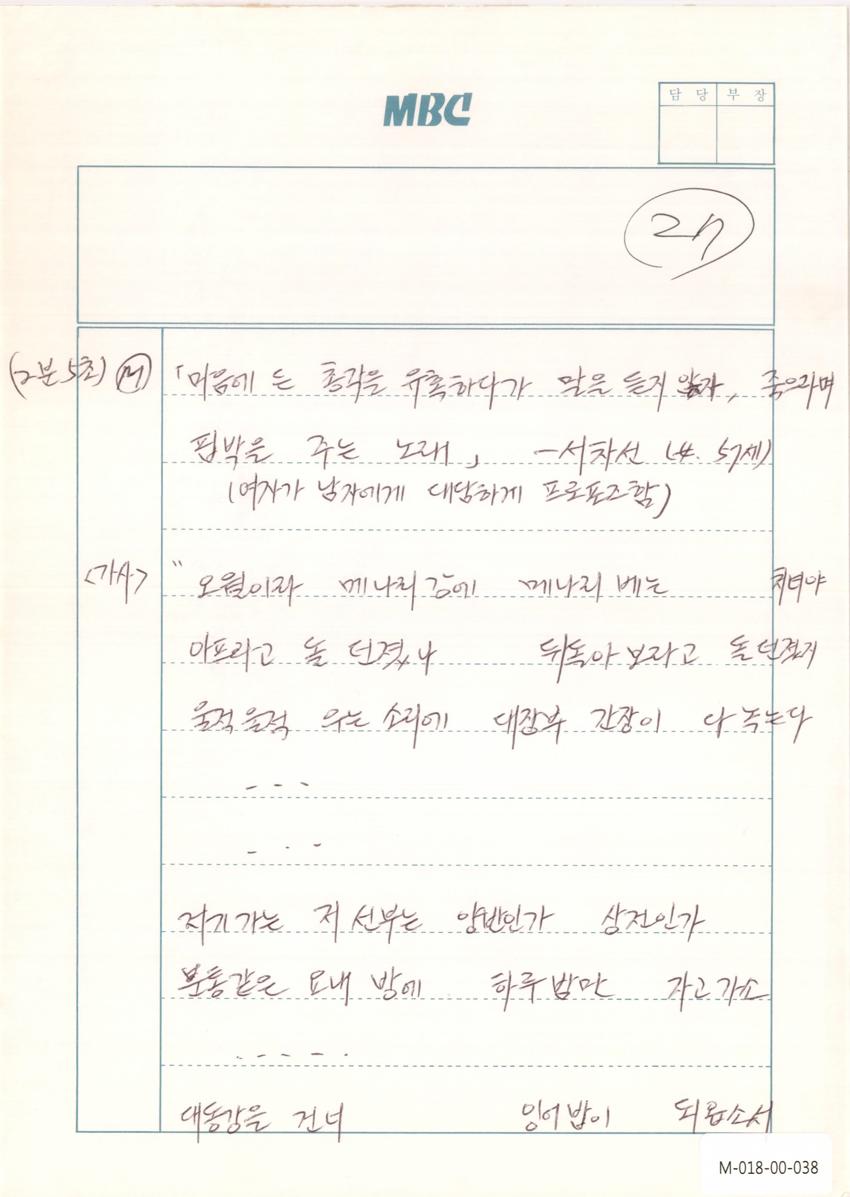 MBC
담당 부장
27
(2분 5초) Ⓜ 「마음에 든 총각을 유혹하다가 말을 듣지 않자, 죽으라며
핍박을 주는 노래」 -서차선 (女. 57세)
(여자가 남자에게 대담하게 프로포즈함)
<가사> " 오월이라 메나리 강에 메나리 베는 처녀야
아프라고 돌 던졌나 뒤돌아 보라고 돌 던졌지
울적울적 우는 소리에 대장부 간장이 다 녹는다
- - -
- - -
저기 가는 저 선부는 양반인가 상전인가
분통같은 요내 방에 하루밤만 자고 가소
- - - - -
대동강을 건너 잉어밥이 되옵소서
M-018-00-038